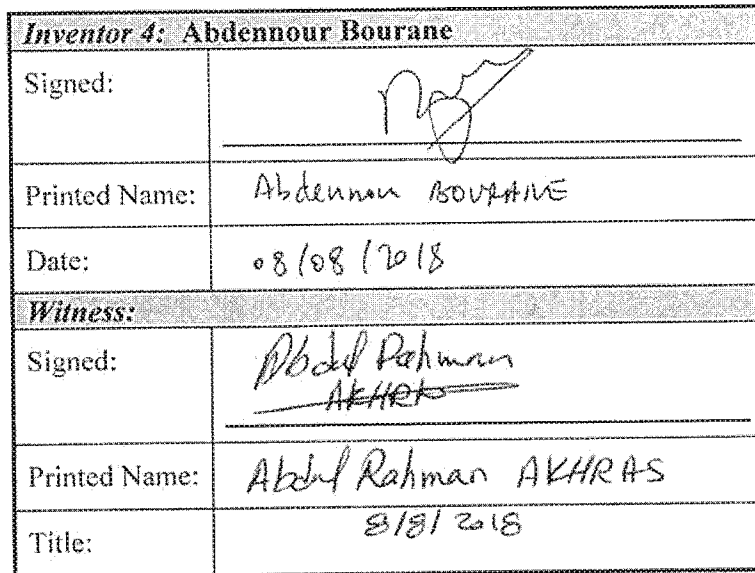 Inventor 4: Abdennour Bourane
Signed:
Printed Name: Abdennour BOURANE
Date: 08/08/2018
Witness:
Signed: Abdul Rahman
AKHRAS
Printed Name: Abdul Rahman AKHRAS
8/8/2018
Title: